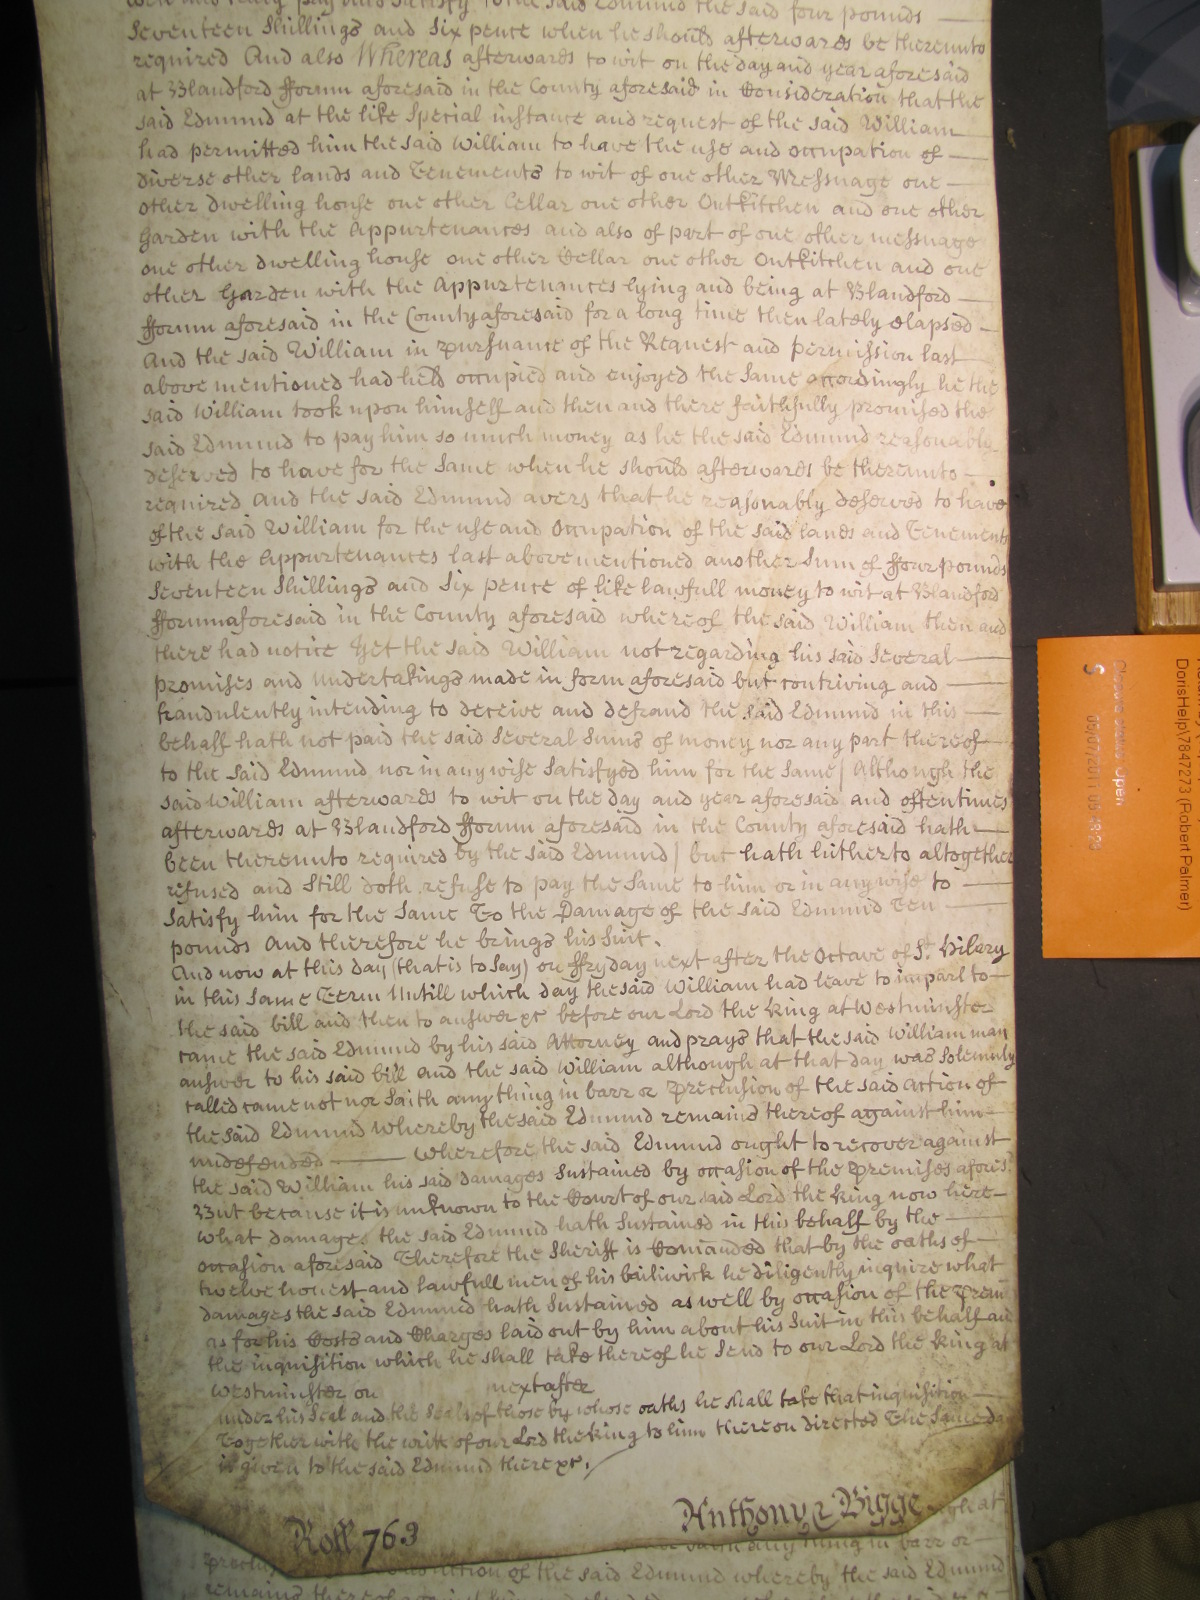 well and truly pay and Satisfy to the said Edmund the said four pounds
Seventeen Shillings and Six pence when he should afterwards be thereunto
required And also Whereas afterwards to wit on the day and year aforesaid
at Blandford fforum aforesaid in the County aforesaid in Consideration that the
said Edmund at the like Special instance and request of the said William
had permitted him the said William to have the use and occupation of
diverse other lands and Tenements to wit of one other Messuage one
other dwelling house one other Cellar one other Outkitchen and one other
Garden with the Appurtenances and also of part of one other messuage
one other dwelling house one other Cellar one other Outkitchen and one
other Garden with the Appurtenances lying and being at Blandford
fforum aforesaid in the County aforesaid for a long time then lately elapsed
And the said William in pursuance of the Request and permission last
above mentioned had held occupied and enjoyed the Same accordingly he the
said William took upon himself and then and there faithfully promised the
said Edmund to pay him so much money as he the said Edmund reasonably
deserved to have for the Same when he should afterwards be thereunto
required And the said Edmund avers that he reasonably deserved to have
of the said William for the use and Occupation of the said lands and Tenements
with the Appurtenances last above mentioned another Sum of ffour pounds
Seventeen Shillings and Six pence of like lawfull money to wit at Blandford
fforum aforesaid in the County aforesaid whereof the said William then and
there had notice Yet the said William not regarding his said Several
promises and undertakings made in form aforesaid but contriving and
fraudulently intending to deceive and defraud the said Edmund in this
behalf hath not paid the said Several Sums of money nor any part thereof
to the said Edmund nor in any wise Satisfyed him for the Same ( Although the
said William afterwards to wit on the day and year aforesaid and oftentimes
afterwards at Blandford fforum aforesaid in the County aforesaid hath
been thereunto required by the said Edmund ) but hath hitherto altogether
refused and Still doth refuse to pay the Same to him or in any wise to
Satisfy him for the Same To the Damage of the said Edmund Ten
pounds And therefore he brings his Suit .
And now at this day (that is to Say) on ffryday next after the Octave of St. Hilary
in this Same Term Untill which day the said William had leave to imparl to
the said bill and then to answer &c before our Lord the King at Westminster
came the said Edmund by his said Attorney and prays that the said William may
answer to his said bill And the said William although at that day was Solemnly
called came not nor Saith any thing in barr or preclusion of the said action of
the said Edmund whereby the said Edmund remains thereof against him
undefended Wherefore the said Edmund ought to recover against
the said William his said damages Sustained by occasion of the premises afores.
But because it is unknown to the Court of our said Lord the King now here
what damages the said Edmund hath Sustained in this behalf by the
occasion aforesaid Therefore the Sheriff is Comanded that by the oaths of
twelve honest and lawfull men of his bailiwick he diligently inquire what
damages the said Edmund hath Sustained as well by occasion of the prem
as for his Costs and Charges laid out by him about his Suit in this behalf and
the inquisition which he shall take thereof he Send to our Lord the King at
Westminster on next after
under his Seal and the Seals of those by whose oaths he shall take that inquisition
Together with the writt of our Lord the King to him thereon directed The Same day
is given to the said Edmund there &c.
Anthony Bigge
Roll 763
any thing in barr or
of the said Edmund whereby the said Edmund
remains thereof against
DorisHelp\7847273 (Robert Palmer)